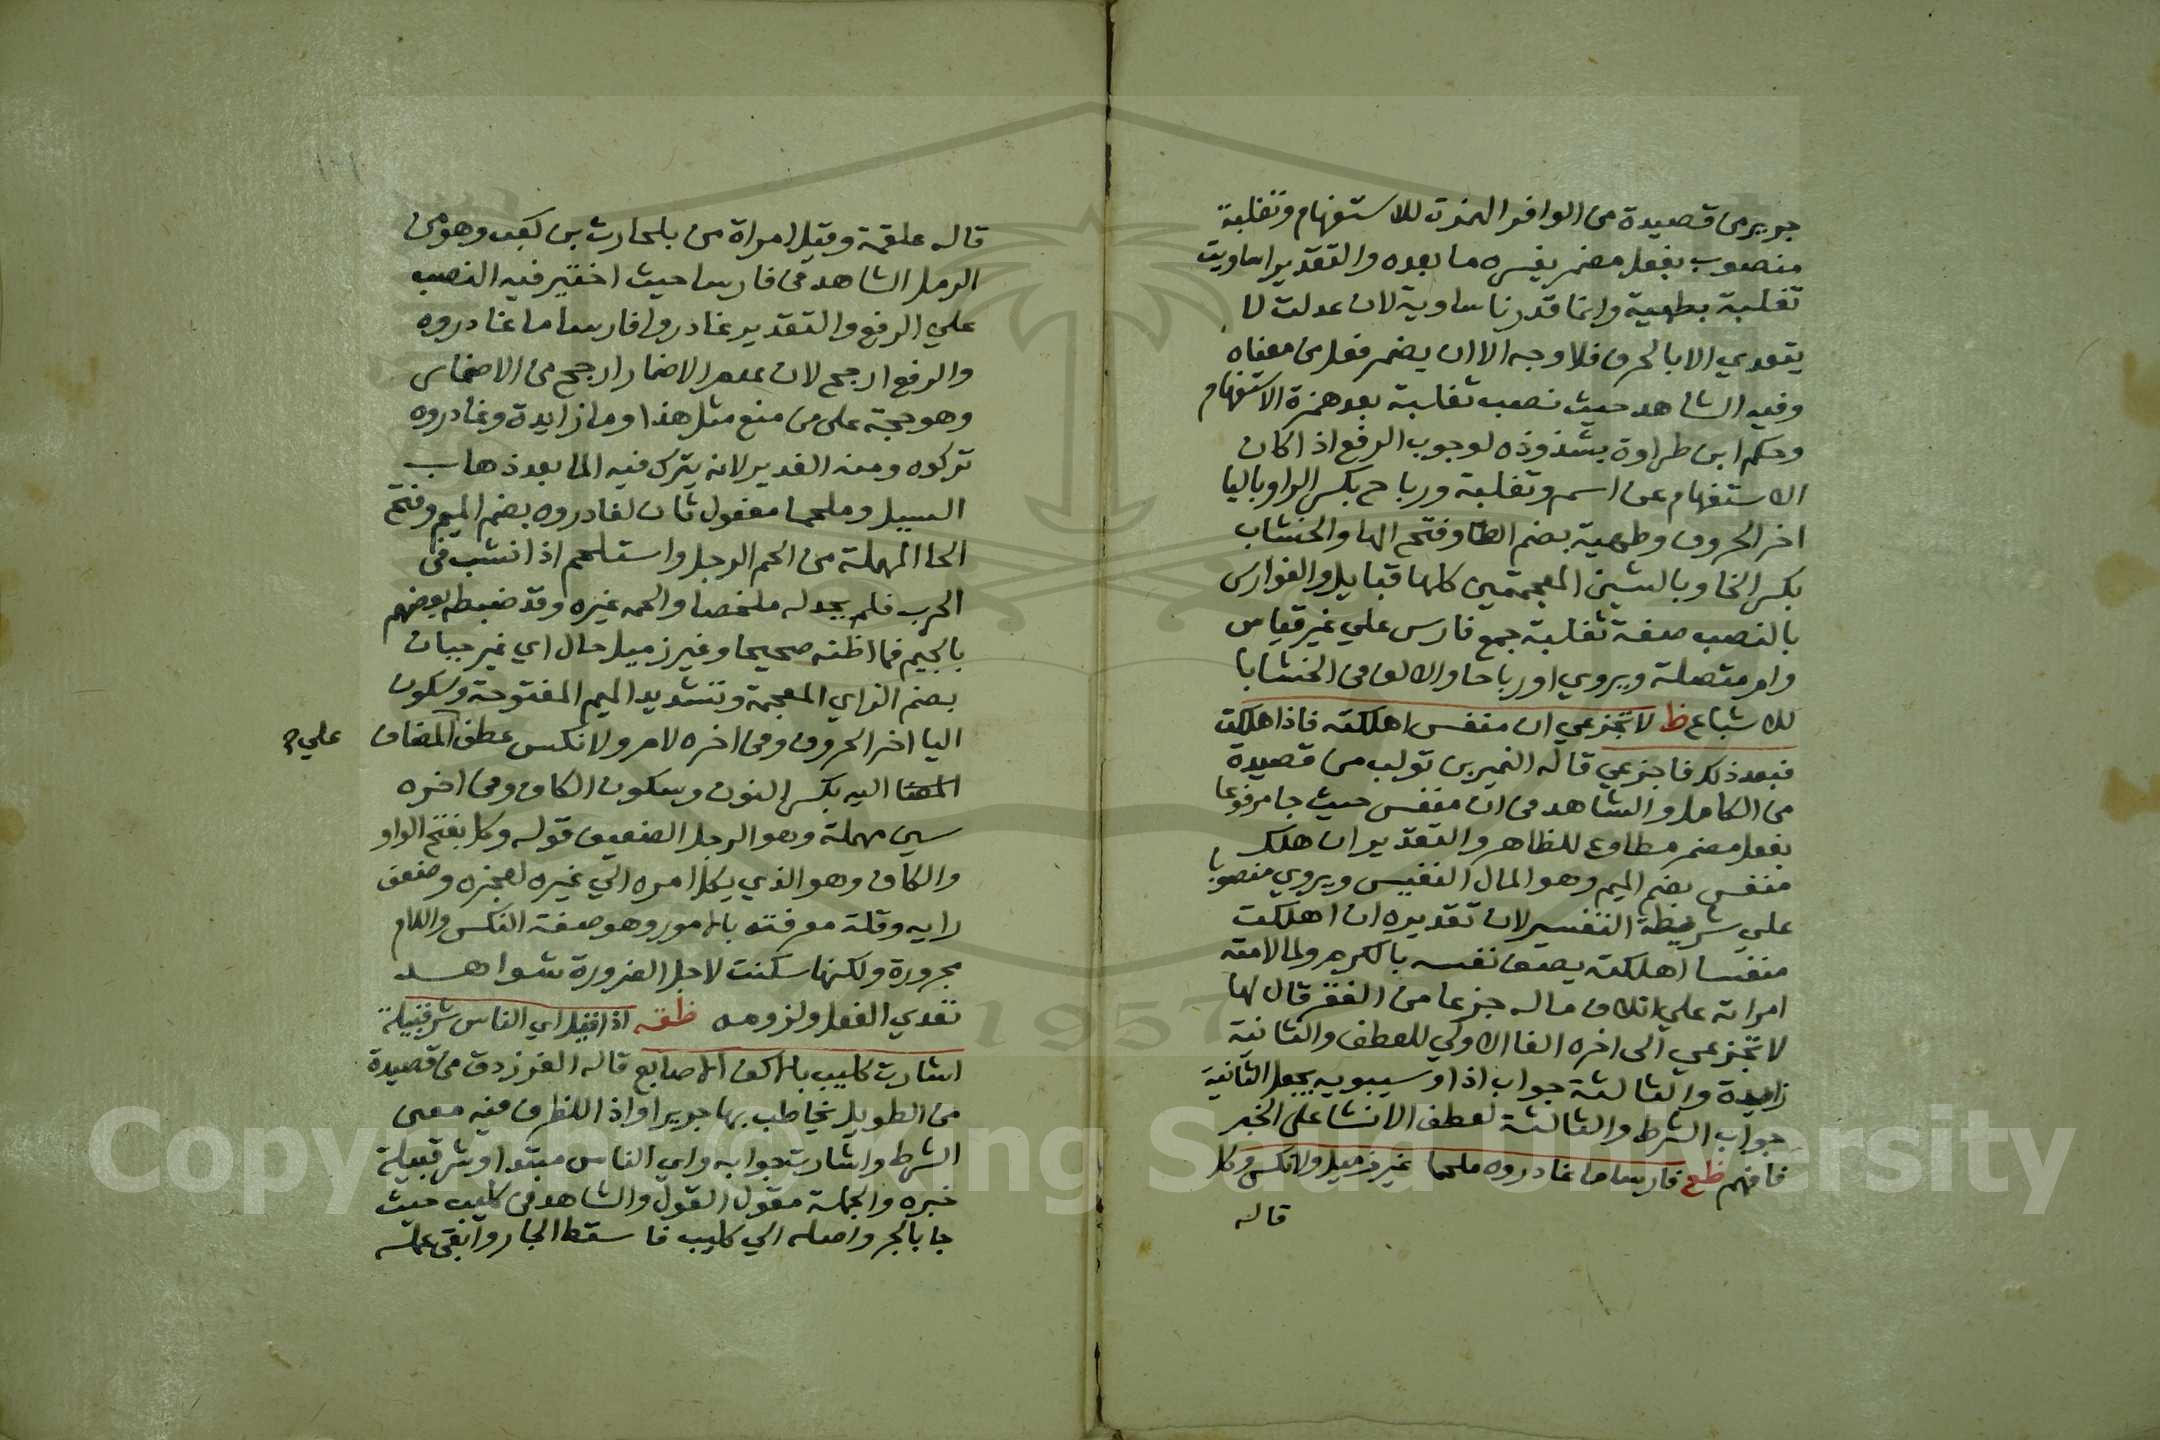 جرير من قصيدة من الوافر الهمزة للاستفهام وتغلبة
منصوب بفعل مضمر يفسره ما بعده والتقدير اساويت
تغلبة بطهية وانما قدرنا ساوية لان عدلت لا
يتعدي الا بالحرف فلا وجه الا ان يضمر فعل من معناه
وفيه الشاهد حيث نصب ثغلبة بعد همزة الاستفهام
وحكم ابن طراوة بشذوذه لوجوب الرفع اذا كان
الاستفهام عن اسم وتغلبة ورباح بكسر الراو باليا
اخر الحروف وطهية بضم الطا وفتح الها والخشاب
بكسر الخا وبالشين المعجمتين كلها قبايل والفوارس
بالنصب صفة ثغلبة جمع فارس علي غير قياس
وام متصلة ويروي او رباحا والالف في الخشابا
للاشباع ظ لا تجزعي ان منفس اهلكته فاذا هلكت
فبعد ذلك فاجزعي قاله النمير بن تولب من قصيدة
من الكامل والشاهد في ان منفس حيث جا مرفوعا
بفعل مضمر مطاوع للظاهر والتقدير ان هلك
منفس بضم الميم وهو المال النفيس ويروي منصوبا
علي شريطة التفسير لان تقديره ان اهلكت
منفسا اهلكته يصف نفسه بالكرم ولما لامته
امراته علي اتلاف ماله جزعا من الفقر قال لها
لا تجزعي الى اخره الفا الاولي للعطف والثانية
زايدة والثالثة جواب اذا وسيبويه يجعل الثانية
جواب الشرط والثالثة لعطف الانشا على الخبر
فافهم ظع فارسا ما غادروه ملحما غير زميل ولا نكس وكل
قاله
قاله علقمة وقيل امراة من بلحارث بن كعب وهو من
الرمل الشاهد في فارسا حيث اختير فيه النصب
علي الرفع والتقدير غادروا فارسا ما غادروه
والرفع ارجح لان عدم الاضمار ارجح من الاضمار
وهو حجة على من منع مثل هذا وما زايدة وغادروه
تركوه ومنه الغدير لانه يترك فيه الما بعد ذهاب
السيل وملحما مفعول ثان لغادروه بضم الميم وفتح
الحا المهملة من الحم الرجل واستلحم اذا نشب في
الحرب فلم يجد له ملخصا والحمه غيره وقد ضبطه بعضهم
بالجيم فما اظنه صحيحا وغير زميل حال اي غير جبان
بضم الزاي المعجمة وتشديد الميم المفتوحة وسكون
اليا اخر الحروف وفي اخره لام ولا نكس عطف المضاف علي
المضا اليه بكسر النون وسكون الكاف وفي اخره
سين مهملة وهو الرجل الضعيف قوله وكل بفتح الواو
والكاف وهو الذي يكل امره الي غيره لعجزه وضعف
رايه وقلة معرفته بالامور وهو صفة النكس واللام
مجرورة ولكنها سكنت لاجل الضرورة شواهد
تعدي الفعل ولزومه ظقه اذا قيل اي الناس شر قبيلة
اشارت كليب بالاكف الاصابع قاله الفرزدق من قصيدة
من الطويل يخاطب بها جريرا واذ اللظرف فيه معنى
الشرط واشارت جوابه واي الناس مبتدا وشر قبيلة
خبره والجملة مقول القول والشاهد في كليب حيث
جا بالجر واصله الي كليب فاسقط الجار وابقى عمله